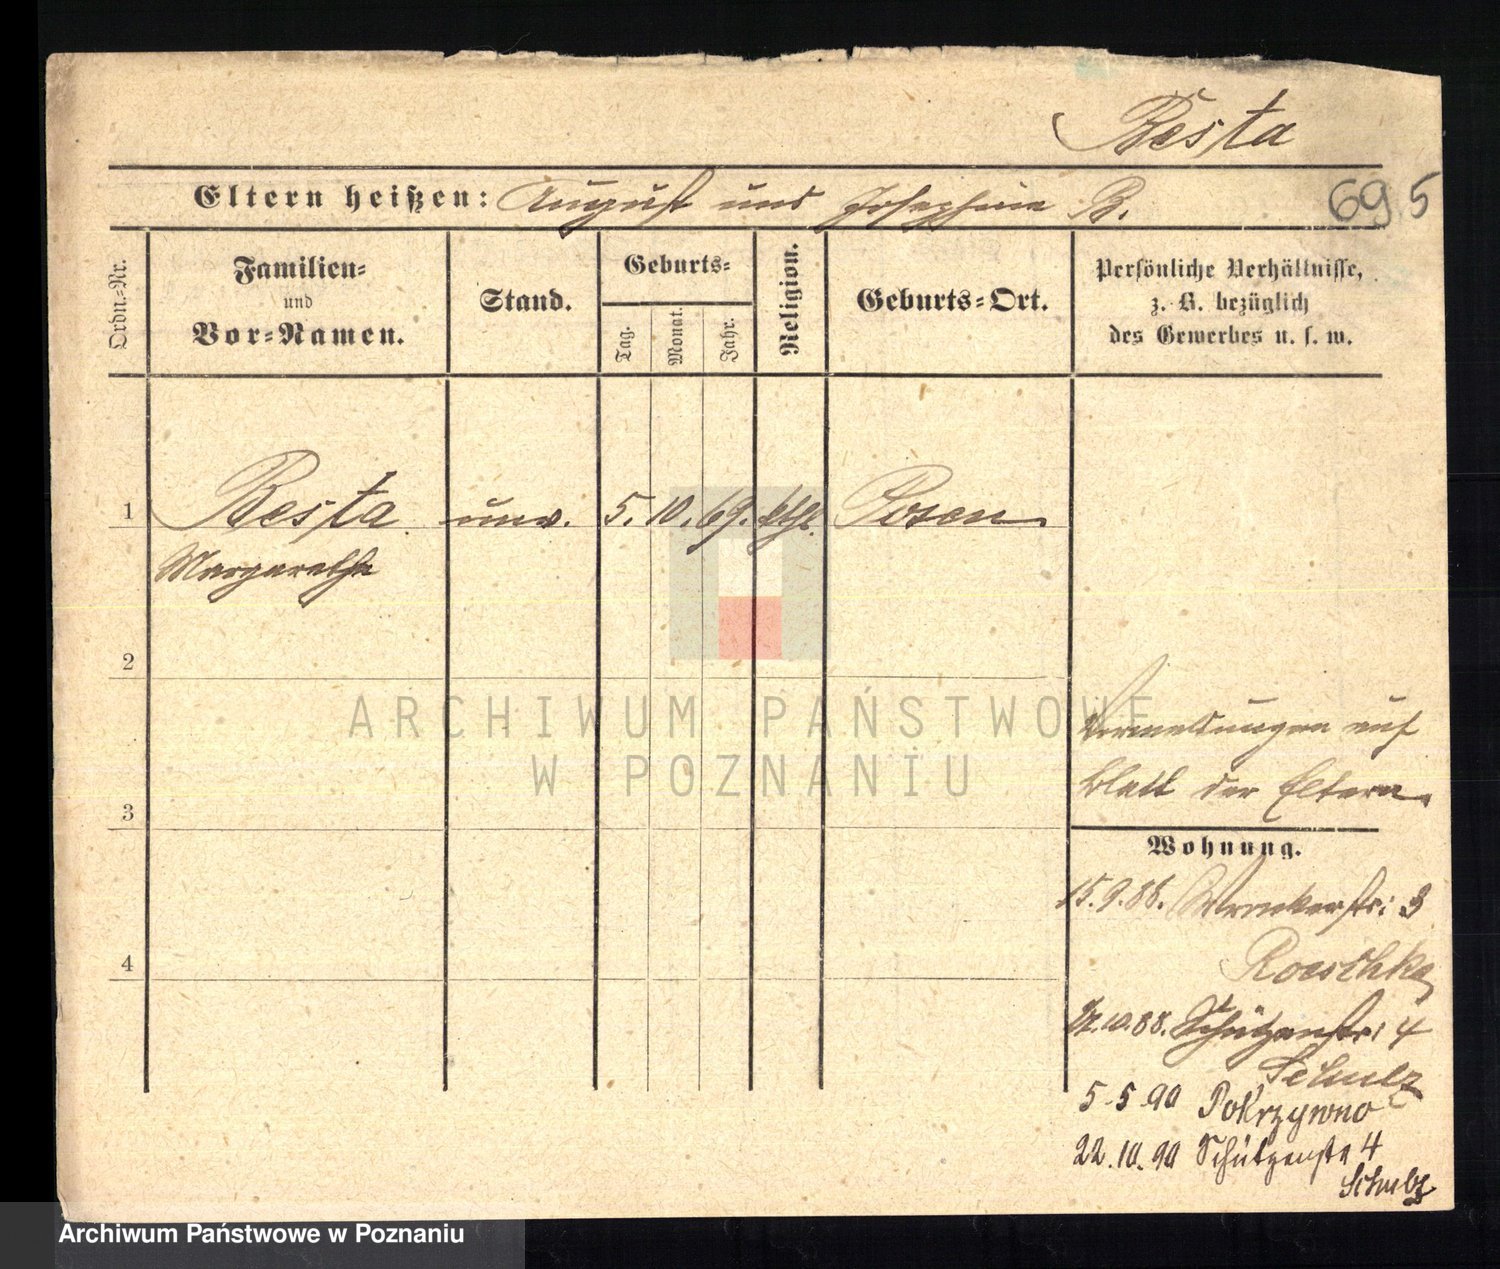 Besta
Eltern heißen: August und Josephine B.
695
Ordn.-Nr.
Familien-
und
Vor-Namen.
Stand.
Geburts-
Tag.
Monat.
Jahr.
Religion.
Geburts-Ort.
Persönliche Verhältnisse,
z. B. bezüglich
des Gewerbes u. s. w.
1 Besta unv. 5. 10. 69. kthl. Posen
Margarethe
2
ARCHIWUM PAŃSTWOWE
W POZNANIU
Vermeldungen auf
Blatt der Eltern.
3
Wohnung.
15.9.88. Wronkerstr: 3
4
Roeschke
10.88. Schützenstr: 4
Schulz
5.5.90 Pokrzywno
22.10.90 Schützenstr 4
Schulz
Archiwum Państwowe w Poznaniu